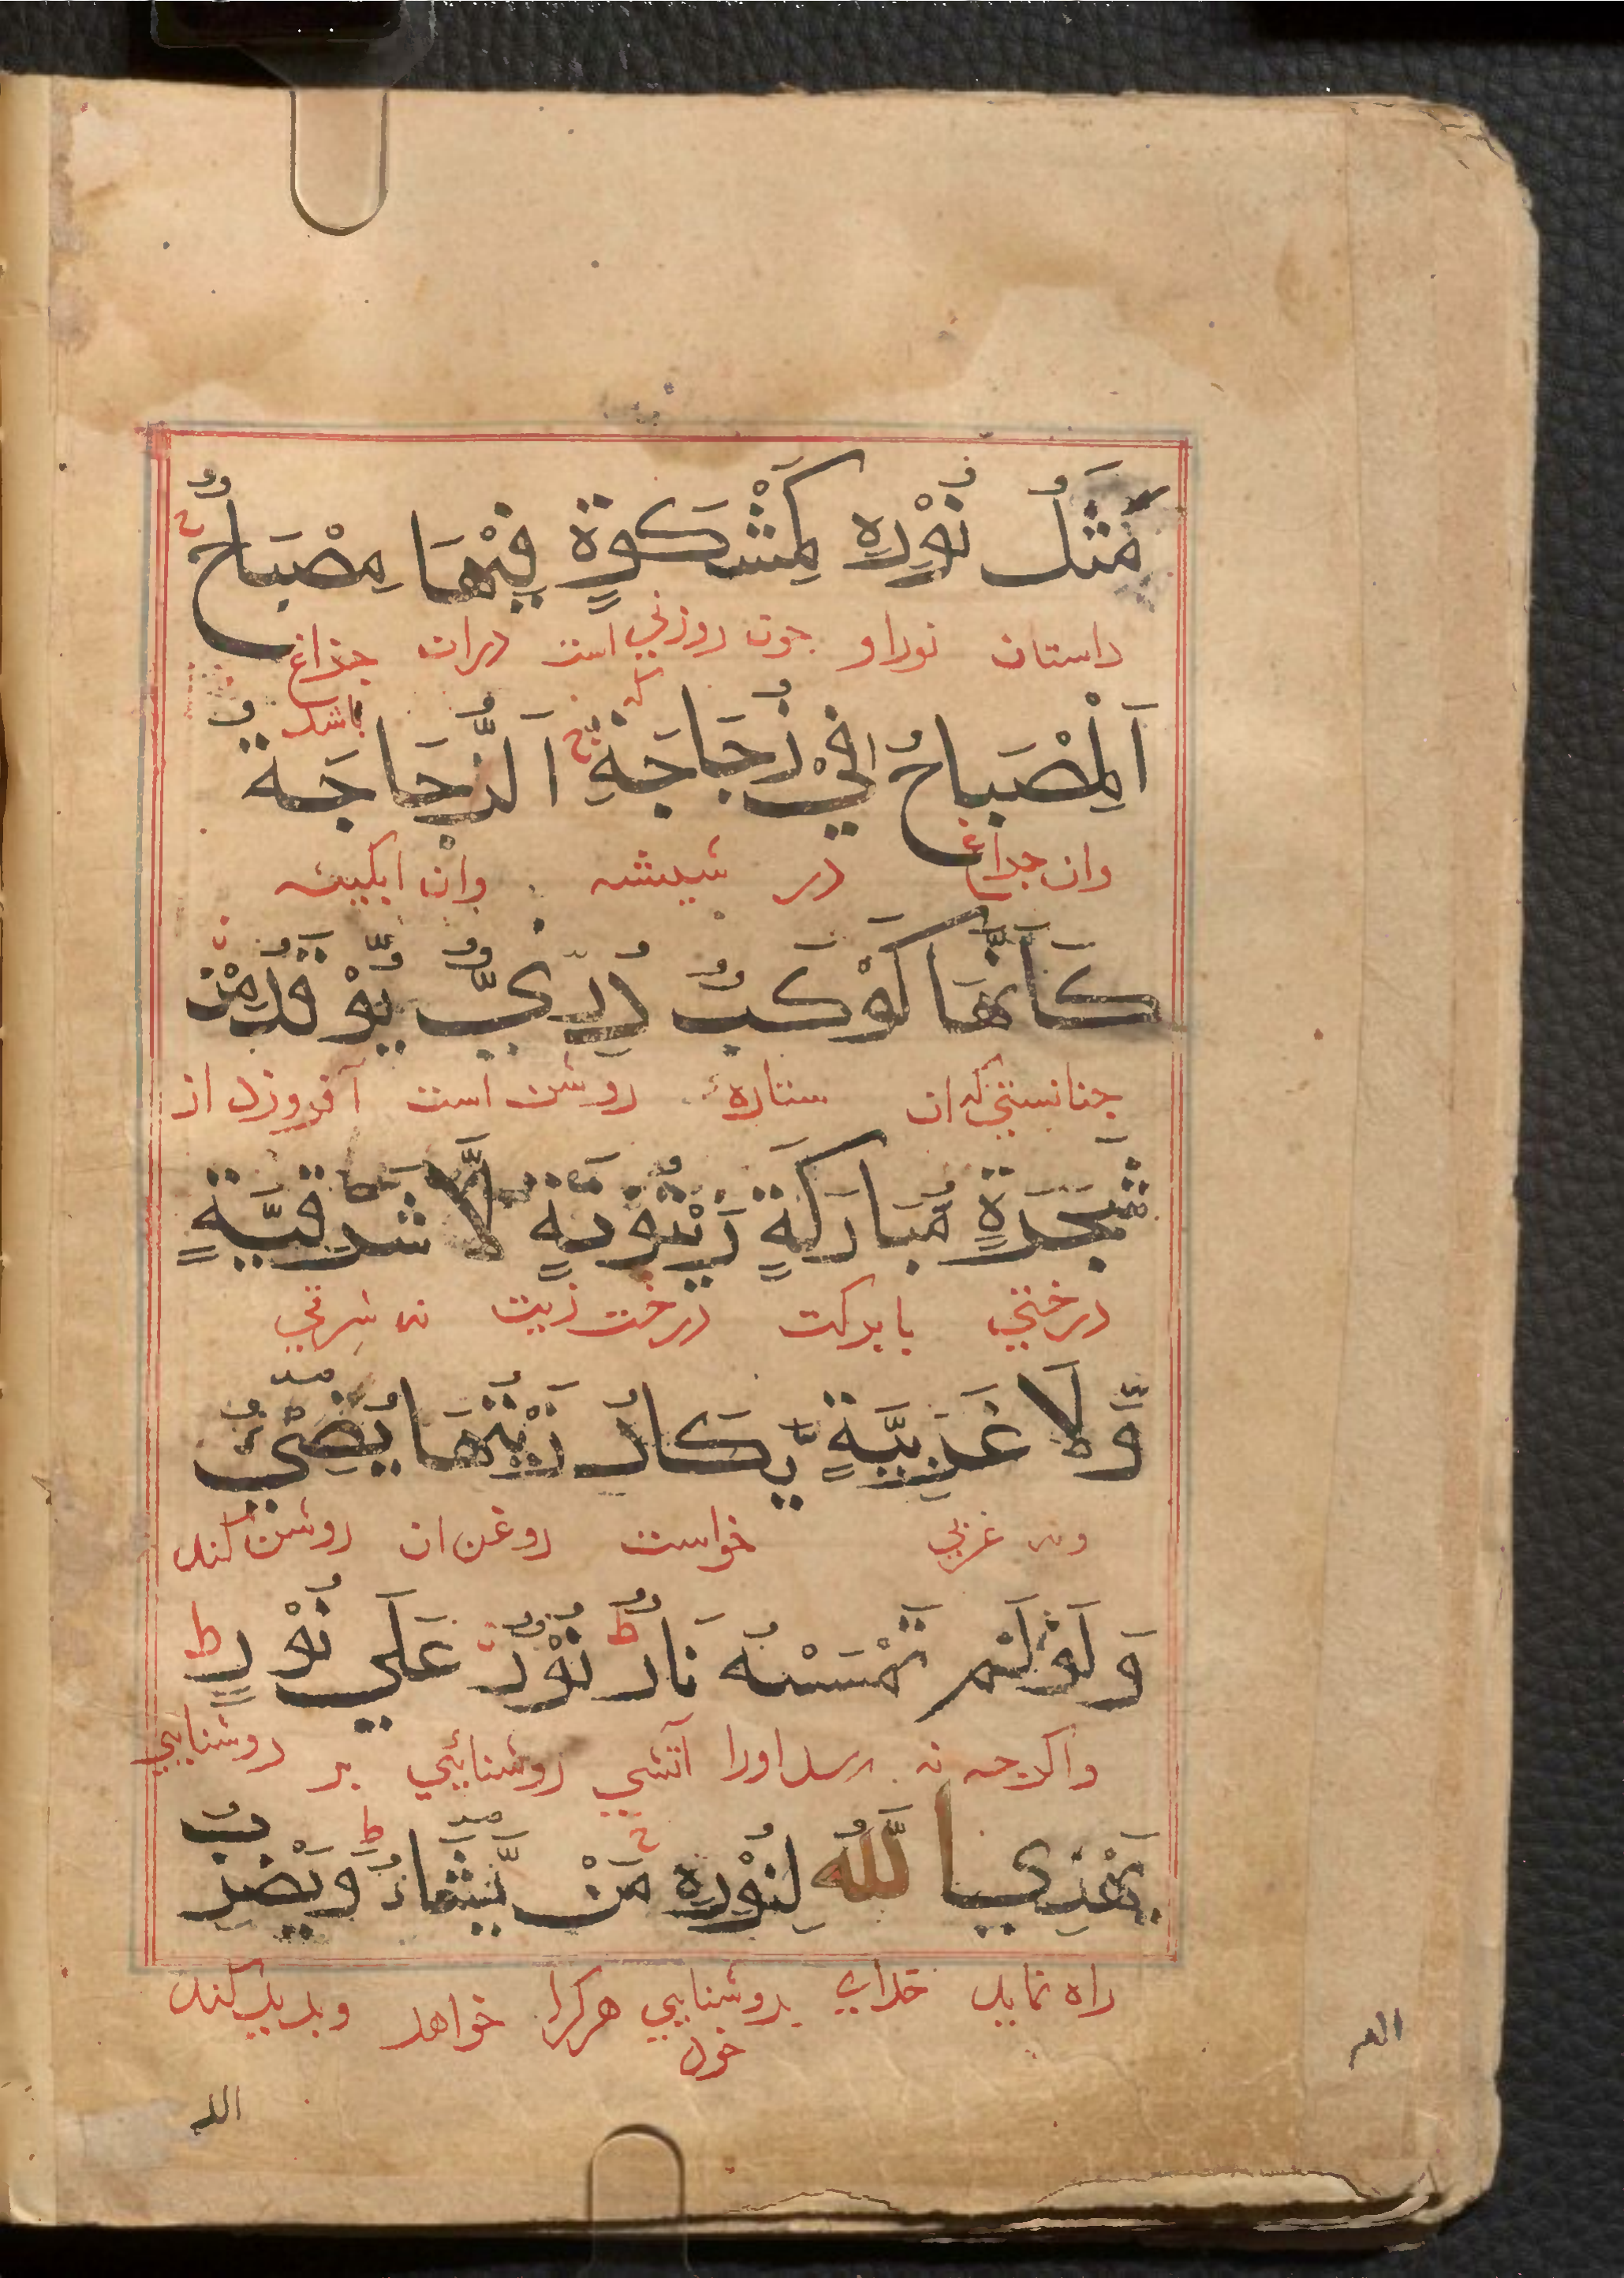 مَثَلُ نُوْرِهٖ كَمِشْكٰوةٍ فِيْهَا مِصْبَاحٌ
داستان نور او جون روزنی است دران جراغ
باشد
اَلْمِصْبَاحُ فِيْ زُجَاجَةٍ اَلزُّجَاجَةُ
وان جراغ در شیشه وان ابکینه
كَاَنَّهَا كَوْكَبٌ دُرِّيٌّ يُّوْقَدُ مِنْ
جنانستی که ان ستاره روشن است آفروزد از
شَجَرَةٍ مُّبَارَكَةٍ زَيْتُوْنَةٍ لَّا شَرْقِيَّةٍ
درختی بابرکت درخت زیت نه شرقی
وَّلَا غَرْبِيَّةٍ يَّكَادُ زَيْتُهَا يُضِيْٓءُ
ونه غربی خواست روغن ان روشن کند
وَلَوْ لَمْ تَمْسَسْهُ نَارٌ ط نُوْرٌ عَلٰي نُوْرٍ ط
واکرجه نه رسد اورا آتشی روشنائیی بر روشنایی
يَهْدِي اللّٰهُ لِنُوْرِهٖ مَنْ يَّشَآءُ ط وَيَضْرِبُ
راه نماید خدای بروشنایی هرکرا خواهد وبدید کند
خود